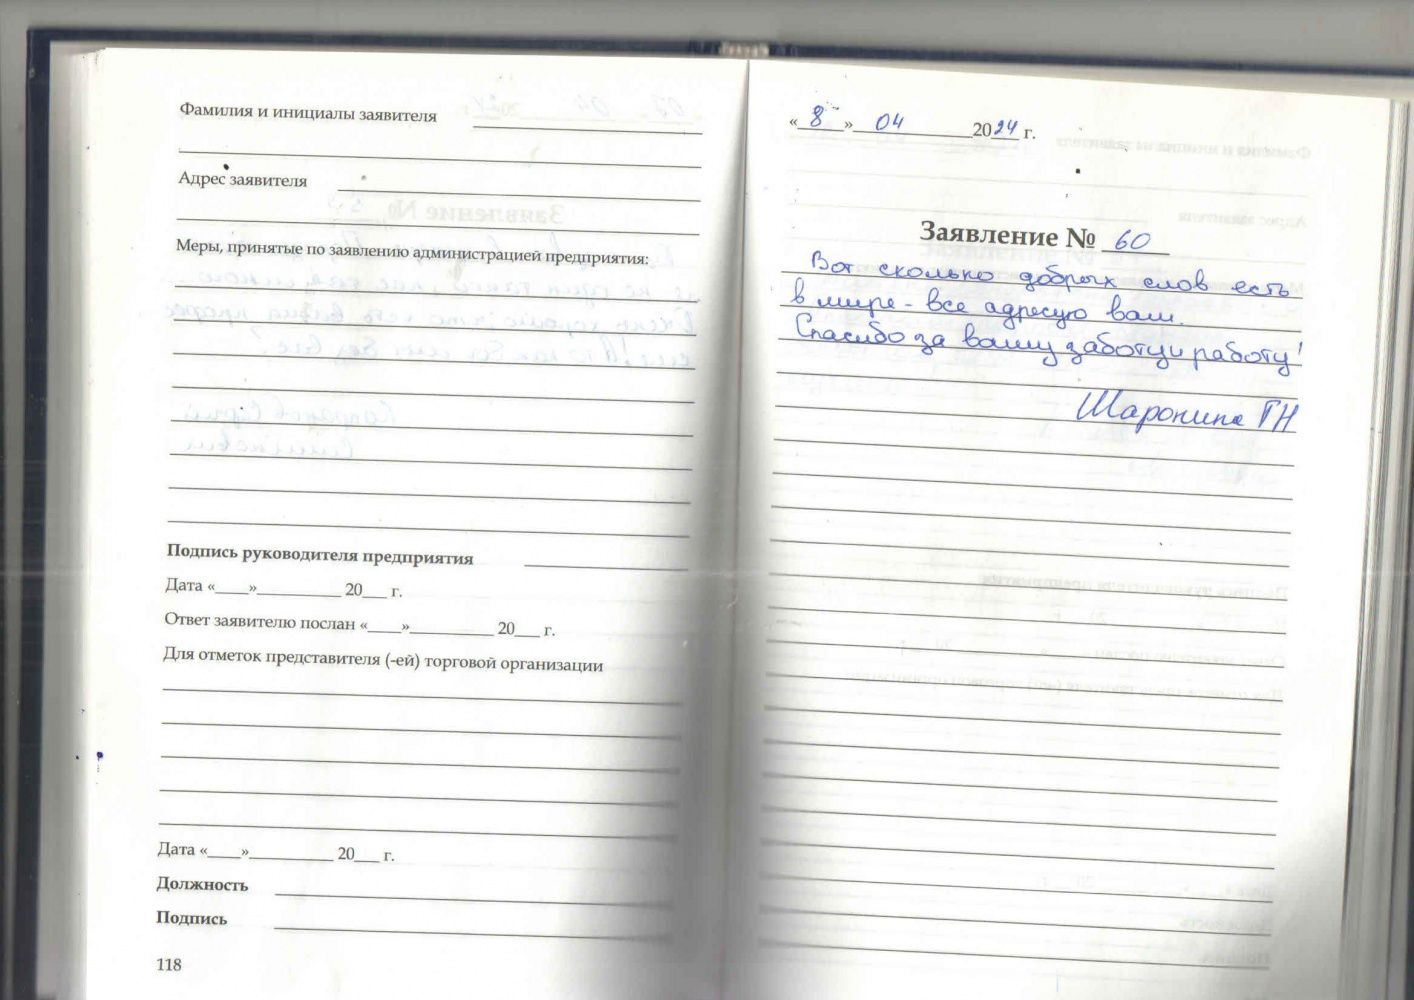 Фамилия и инициалы заявителя
Адрес заявителя
Меры, принятые по заявлению администрацией предприятия:
Подпись руководителя предприятия
Дата «____»__________ 20___ г.
Ответ заявителю послан «____»__________ 20___ г.
Для отметок представителя (-ей) торговой организации
Дата «____»__________ 20___ г.
Должность
Подпись
118
«8» 04 2024 г.
Заявление № 60
Вот сколько добрых слов есть
в мире - все адресую вам.
Спасибо за вашу заботу и работу!
Шаронина ГН